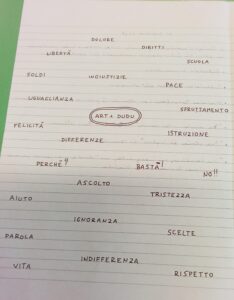 DOLORE
DIRITTI
LIBERTÀ
SCUOLA
SOLDI
INGIUSTIZIE
PACE
UGUAGLIANZA
SFRUTTAMENTO
ART + DUDU
FELICITÀ
ISTRUZIONE
DIFFERENZE
PERCHÉ !!
BASTA !
NO !!
ASCOLTO
AIUTO
TRISTEZZA
IGNORANZA
SCELTE
PAROLA
INDIFFERENZA
VITA
RISPETTO